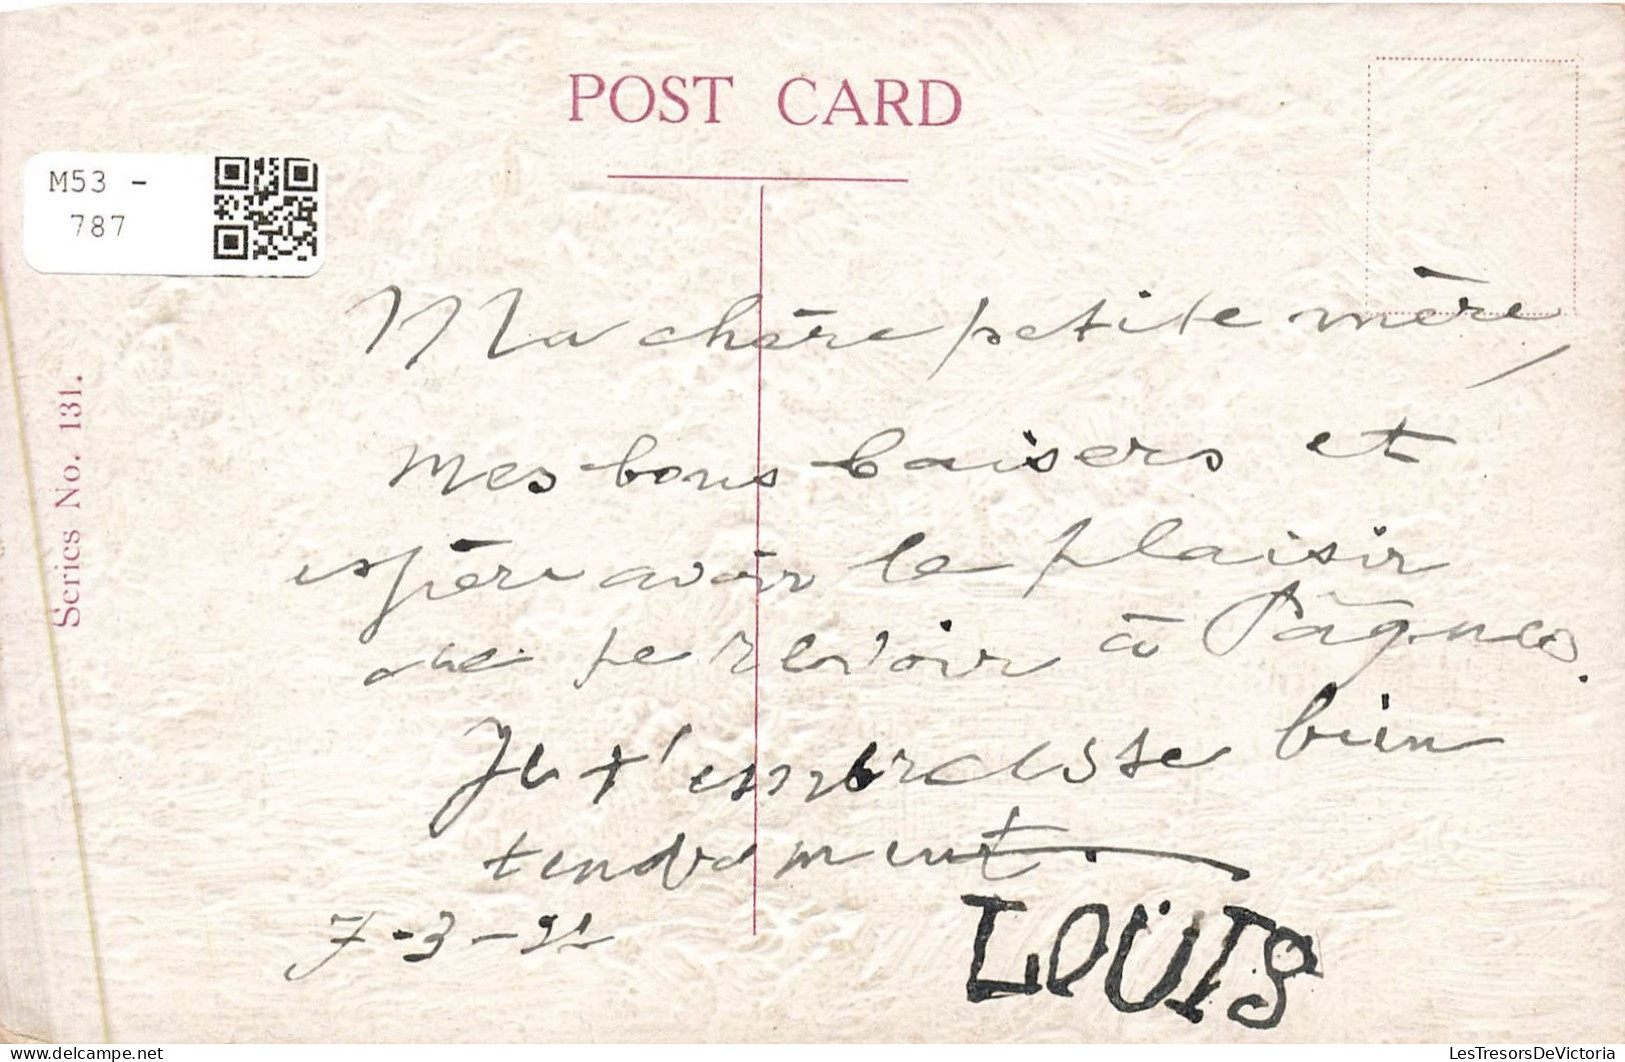 POST CARD
M53 -
787
Series No. 131.
Ma chère petite mère,
Mes bons baisers et
espère avoir le plaisir
de te revoir à Pâques.
Je t'embrasse bien
tendrement.
7-3-
LOUIS
LesTresorsDeVictoria